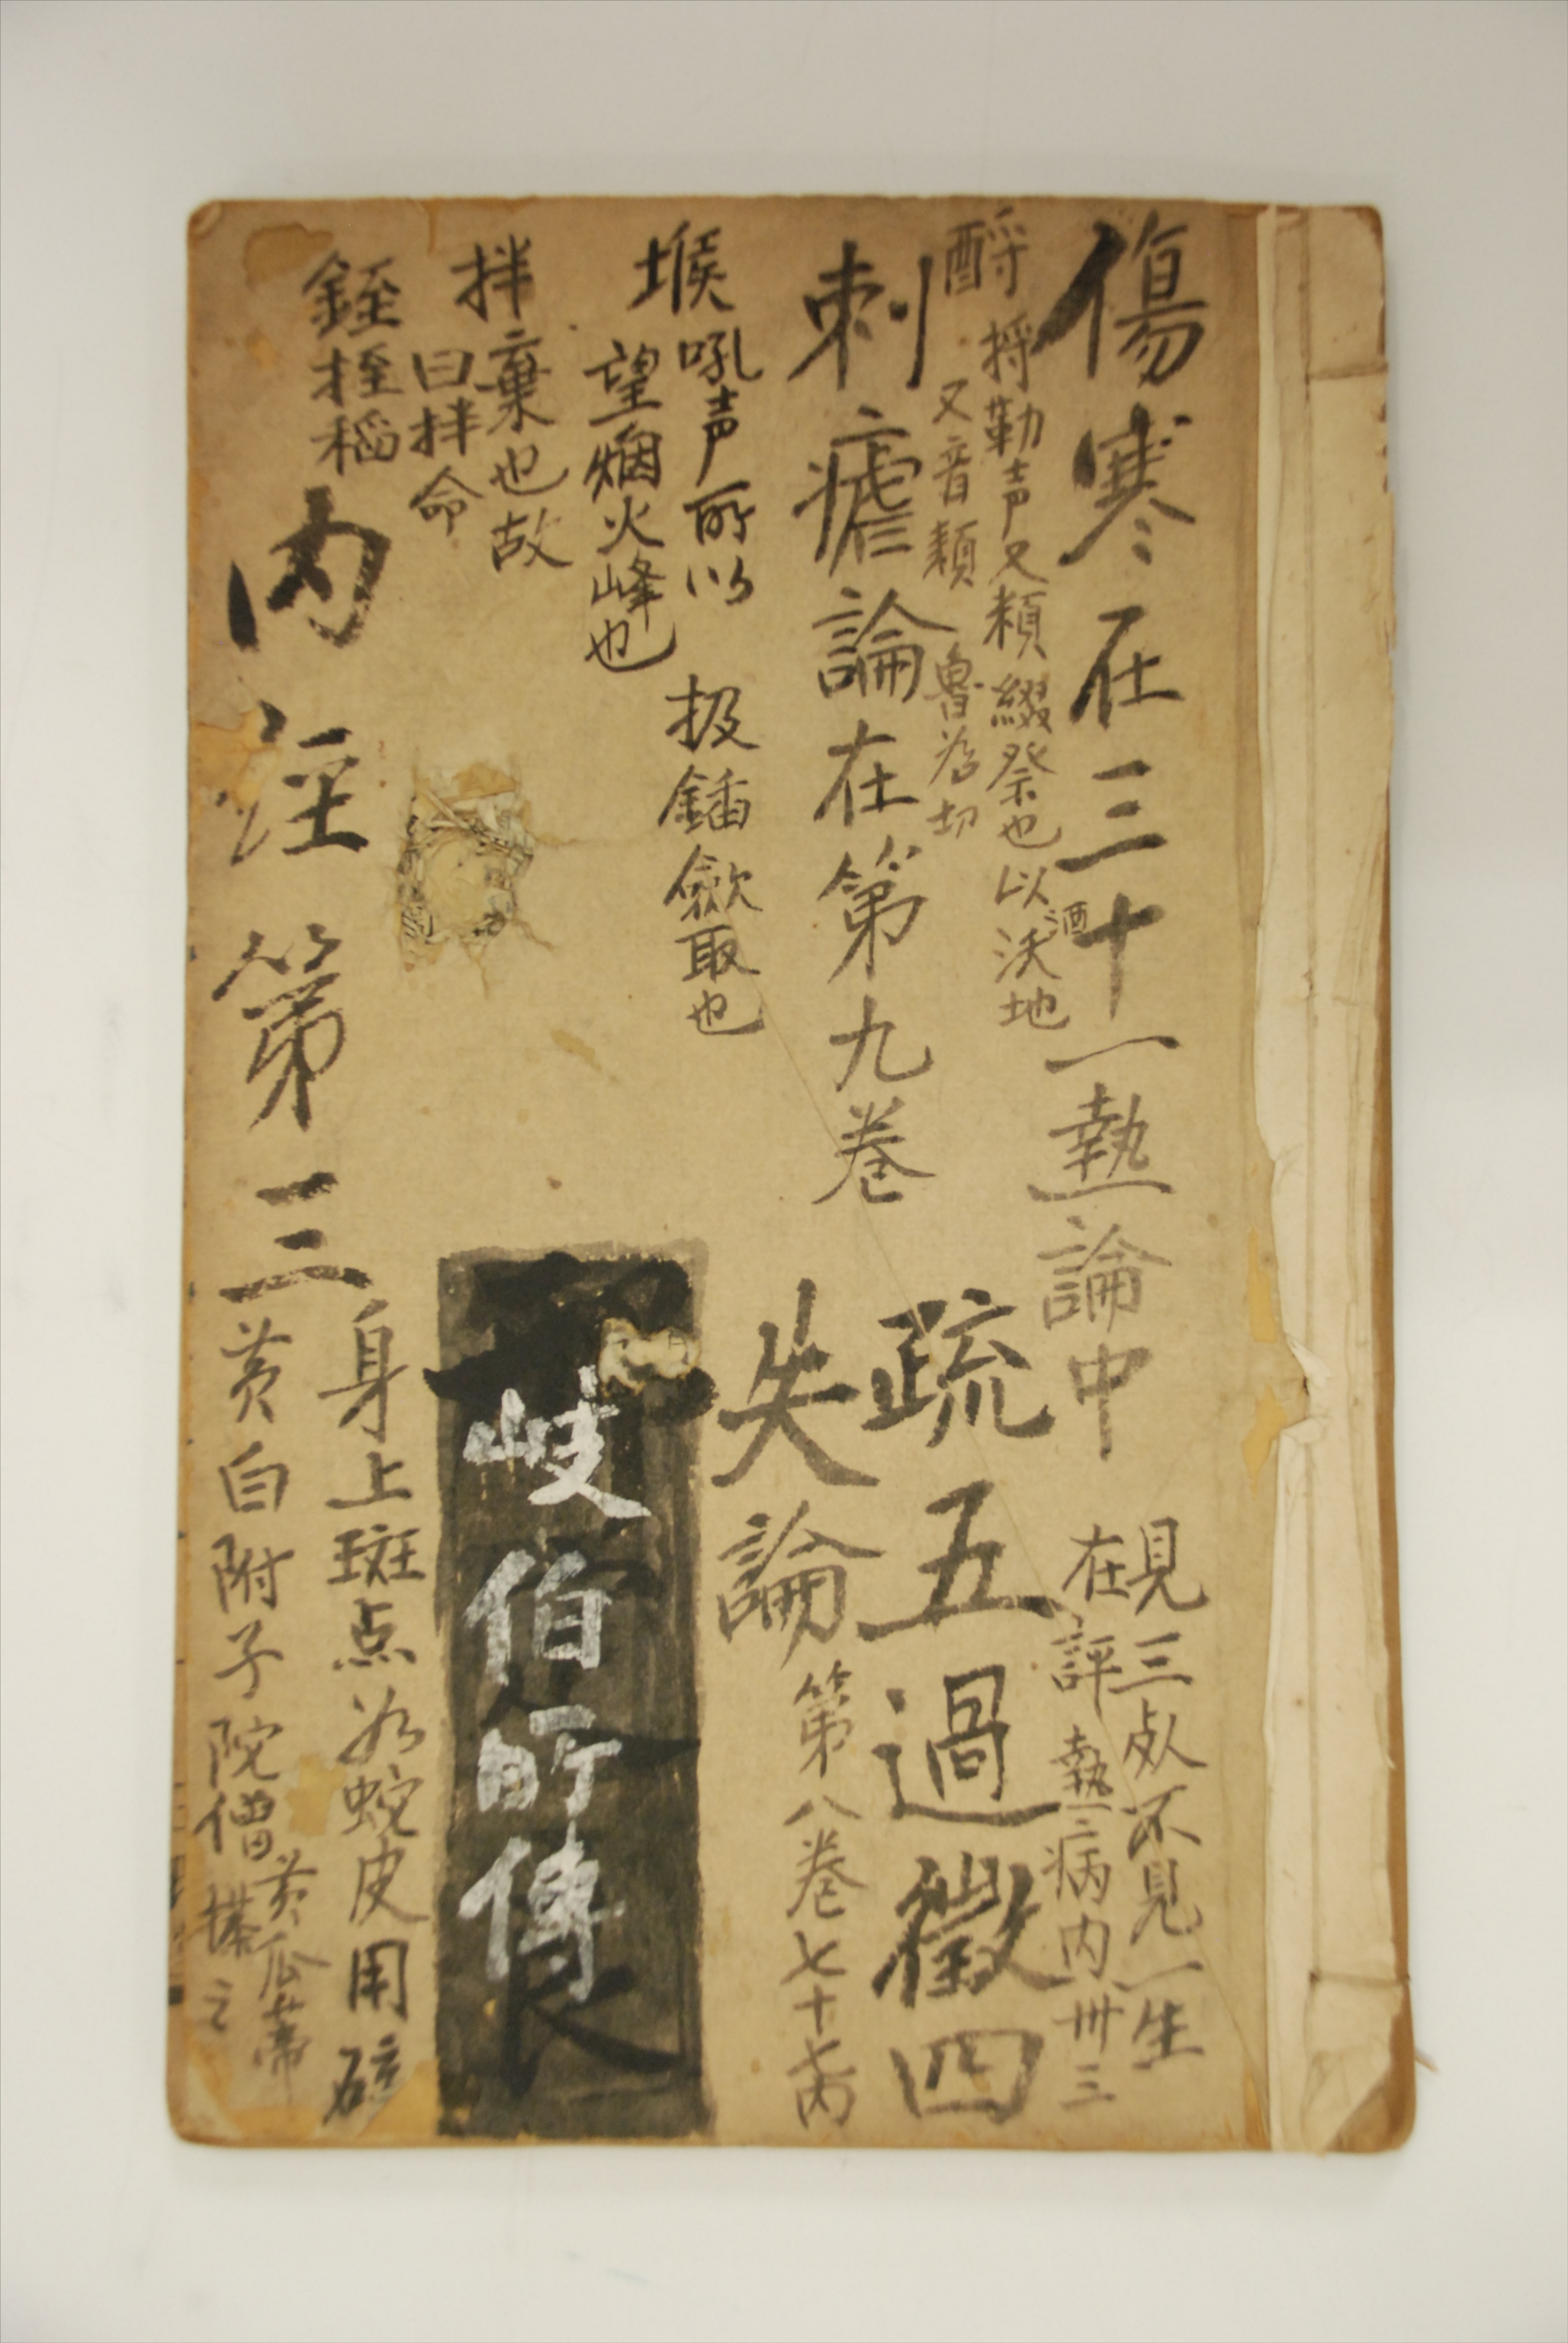 傷寒在三十一熱論中
見三处不見一生
在評熱病内卅三
酹
捋勒声又頪綴祭也以酒沃地
又音頪 魯为切
刺瘧論在第九卷
疏五過徵四
失論第八卷七十七丙
堠吼声所以
望烟火峰也
扱鍤歛取也
拌棄也故
曰拌命
銍挃稻
岐伯所傳
内涇第三
身上斑点如蛇皮用硫
黄白附子陀僧
黄瓜蒂
搽之